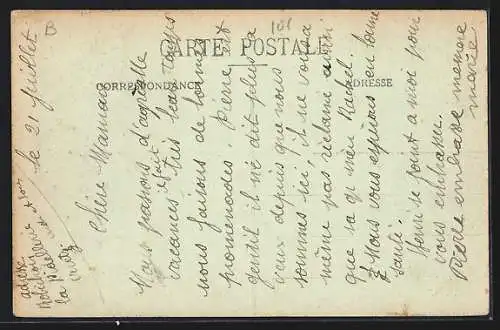 CARTE POSTALE
CORRESPONDANCE
ADRESSE
le 21 juillet
Chère Maman
Nous passons d'agréable
vacances il fait très beau temps
nous faisons de bonnes
promenades. Pierre est
gentil il ne dit plus
yeux depuis que nous
sommes ici, il ne vous a
même pas réclamé ainsi
que sa Rachel.
Nous vous espérons en bonne
santé.
Henri se joint a moi pour
vous embrasser.
Pierre embrasse memere
marie